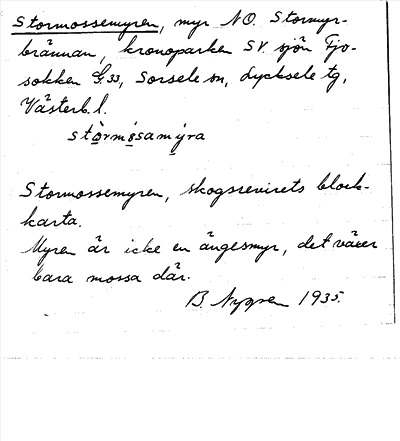 Stormossemyren, myr NO. Stormyr-
brännan, kronoparken SV. sjön Fjo-
sokken G 33, Sorsele sn, Lycksele tg,
Västerb. l.
stòrmósamýra
Stormossemyren, skogsrevirets block-
karta.
Myren är icke en ängesmyr, det växer
bara mossa där.
B. Nygren 1935.